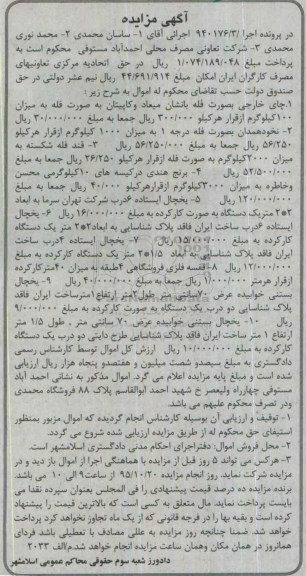 آگهی مزایده
در پرونده اجرا ۹۴۰۱۷۶/۳/ اجرائی آقای ۱- ساسان محمدی ۲- محمد نوری
محمدی ۳- شرکت تعاونی مصرف محلی احمدآباد مستوفی محکوم است به
پرداخت مبلغ ۱/۰۷۴/۱۸۹/۰۴۸ ریال در حق اتحادیه مرکزی تعاونیهای
مصرف کارگران ایران امکان مبلغ ۴۴/۶۹۱/۹۱۴ ریال نیم عشر دولتی در حق
صندوق دولت حسب تقاضای محکوم له اموال به شرح زیر :
۱.چای خارجی بصورت فله بانشان میعاد وکاپیتان به صورت فله به میزان
۱۰۰کیلوگرم ازقرار هرکیلو ۳۰۰/۰۰۰ ریال جمعا به مبلغ ۳۰/۰۰۰/۰۰۰ ریال
۲- نخودهمدان بصورت فله درجه ۱ به میزان ۱۰۰۰ کیلوگرم ازقرار هرکیلو
۵۶/۲۵۰ ریال جمعا به مبلغ ۵۶/۲۵۰/۰۰۰ ریال ۳- قند فله شکسته به
میزان ۲۰۰۰کیلوگرم به صورت فله ازقرار هرکیلو ۲۶/۲۵۰ ریال جمعا به مبلغ
۵۲/۵۰۰/۰۰۰ ریال ۴- برنج هندی درکیسه های ۱۰کیلوگرمی محسن
وخاطره به میزان ۳۰۰۰کیلوگرم ازقرارهرکیلو ۴۰/۰۰۰ ریال جمعا به مبلغ
۱۲۰/۰۰۰/۰۰۰ ریال ۵- یخچال ایستاده ۶درب شرکت تهران سرما به ابعاد
۲*۲ متریک دستگاه به صورت کارکرده به مبلغ ۱۶/۰۰۰/۰۰۰ ریال ۶- یخچال
ایستاده ۶درب ساخت ایران فاقد پلاک شناسایی به ابعاد۲*۲ متر یک دستگاه
کارکرده به مبلغ ۱۵/۰۰۰/۰۰۰ ریال ۷- یخچال ایستاده ۴درب ساخت
ایران فاقد پلاک شناسایی به ابعاد ۱/۵*۲ متر یک دستگاه کارکرده به مبلغ
۱۲/۰۰۰/۰۰۰ ریال ۸-قفسه فلزی فروشگاهی ۴طبقه به میزان ۴۰مترکارکرده
ازقرار هرمتر ۱/۰۰۰/۰۰۰ ریال جمعا به مبلغ ۴۰/۰۰۰/۰۰۰ ریال ۹- یخچال
بستنی خوابیده عرض ۷۰سانتی متر، طول ۲متر ارتفاع ۱مترساخت ایران فاقد
پلاک شناسایی دو درب یک دستگاه به صورت کارکرده به مبلغ ۹/۰۰۰/۰۰۰
ریال ۱۰- یخچال بستنی خوابیده عرض ۷۰ سانتی متر ، طول ۱/۵ متر
ارتفاع ۱ متر ساخت ایران فاقد پلاک شناسایی طرح داینی دو درب یک دستگاه
کارکرده به مبلغ ۱۰/۰۰۰/۰۰۰ ریال ارزش کل اموال توسط کارشناس رسمی
دادگستری به مبلغ سیصدو شصت میلیون و هفتصدو پنجاه هزار ریال ارزیابی
شده است و مبلغ پایه مزایده اعلام می گردد. اموال مذکور به نشانی احمد آباد
مستوفی چهارراه ولیعصر خ شهید احمد ابوالقاسم پلاک ۸۸ فروشگاه محمدی
ودر تصرف محکوم علیهم می باشد.
۱- توقیف و ارزیابی آن بوسیله کارشناس انجام گردیده که اموال مزبور بمنظور
استیفای حق محکوم له از طریق مزایده ارزیابی شده شروع می گردد.
۲- محل فروش اموال: دفتراجرای احکام مدنی دادگستری اسلامشهر است.
۳- هرکس می تواند ۵ روز قبل از مزایده با هماهنگی اجرا از اموال باز دید و در
مزایده شرکت نماید. روز انجام مزایده ۹۵/۱۰/۲۰ از ساعت۹ الی ۱۰ می باشد.
برنده مزایده ده درصد قیمت پیشنهادی را فی المجلس بعنوان سپرده نقدا می
بایست پرداخت نماید. مال متعلق به کسی است که بالاترین قیمت را پیشنهاد
کرده است و بقیه بها را در فرجه قانونی که از یک ماه تجاوز نخواهد کرد پرداخت
خواهد شد. ضمنا چنانچه روز مزایده به عللی مصادف با تعطیلی باشد فردای
همانروز در همان مکان وهمان ساعت مزایده انجام خواهد شد.م/الف ۲۰۳۳
دادورز شعبه سوم حقوقی محاکم عمومی اسلامشهر